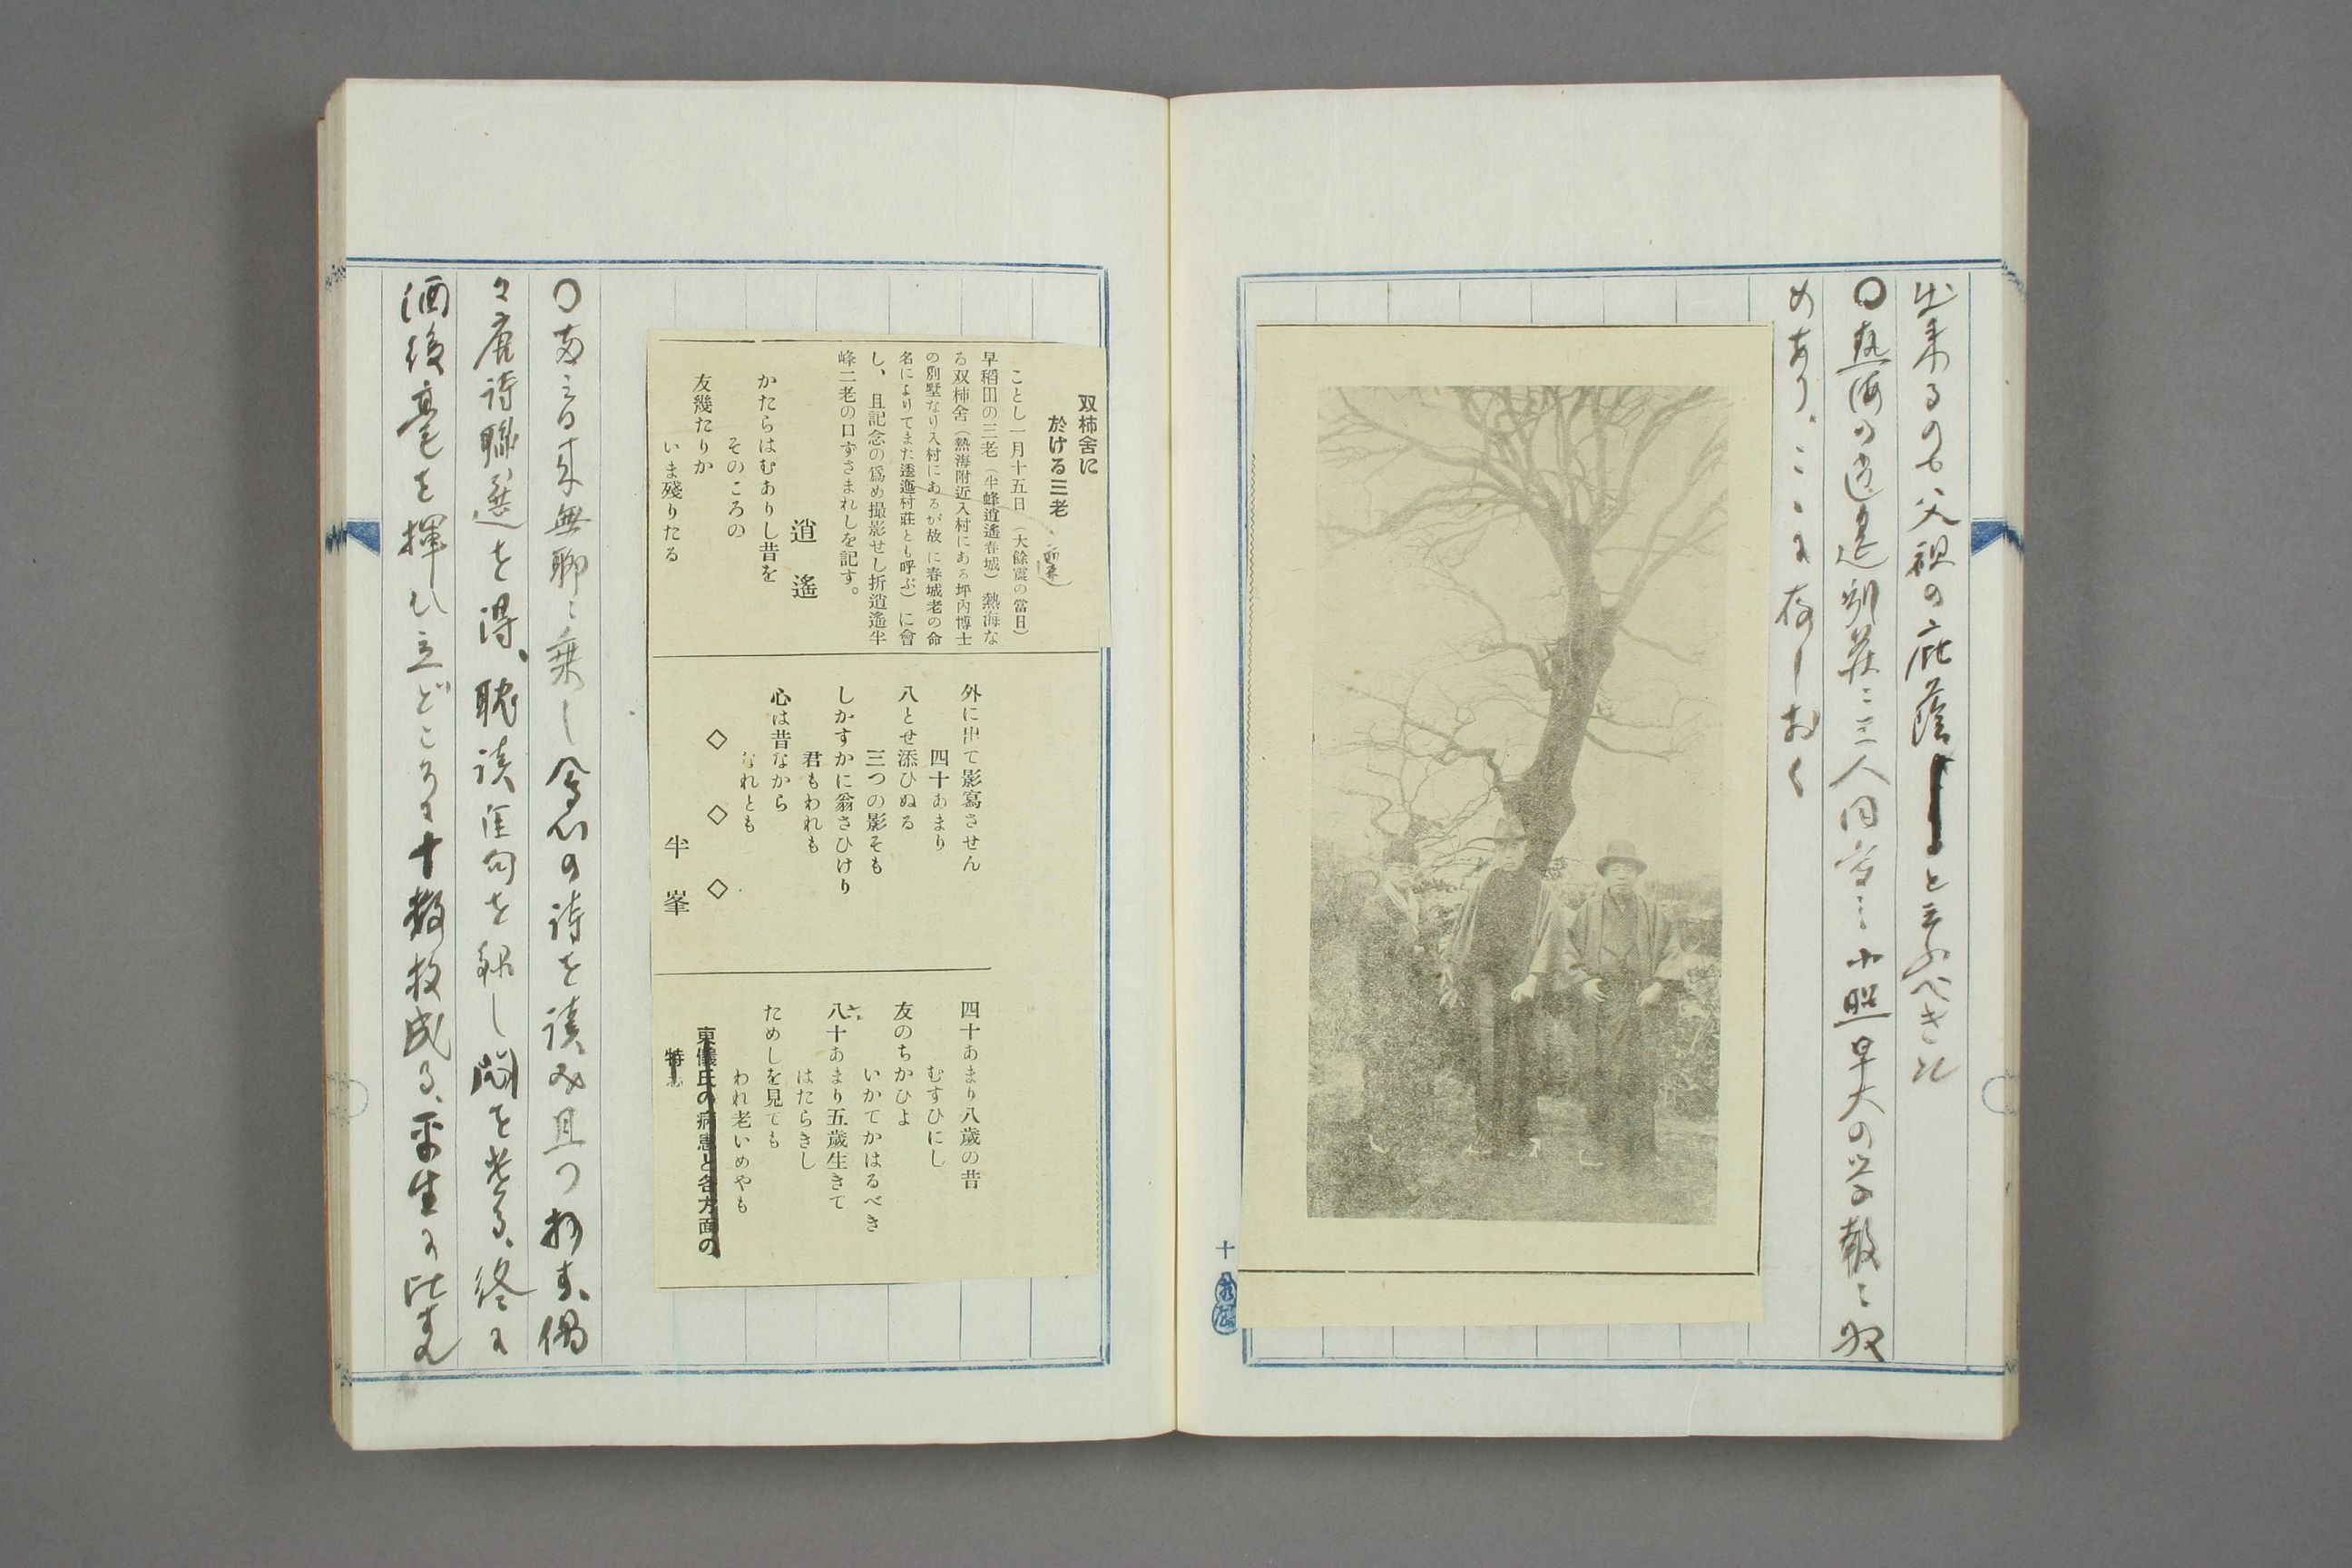 出来るのも父祖の庇蔭と云ふべきか
〇熱海の逍遥別荘ニ三人同写之小照早大の学報ニ収
めあり、こゝに存しおく
十
双柿舍に
於ける三老
ことし一月十五日（大餘震の當日）
早稻田の三老（半峰逍遙春城）熱海な
る双柿舍（熱海附近入村にある坪內博士
の別墅なり入村にあるが故に春城老の命
名によりてまた逶迤村莊とも呼ぶ）に會
し、且記念の爲め撮影せし折逍遙半
峰二老の口ずさまれしを記す。
逍遙
かたらはむありし昔を
そのころの
友幾たりか
いま殘りたる
外に出て影寫させん
四十あまり
八とせ添ひぬる
三つの影そも
しかすかに翁さひけり
君もわれも
心は昔なから
なれとも
◇ ◇ ◇
半峯
四十あまり八歲の昔
むすひにし
友のちかひよ
いかてかはるべき
八十あまり五歲生きて
はたらきし
ためしを見ても
われ老いめやも
東儀氏の病患と各方面の
特志
〇雨音来無聊ニ乗し会心の詩を読み且つ抄す、偶
々唐詩聯選を得、耽読佳句を録し悶を遣る、終に
酒後毫を揮ひ立どころに十数枚成る、平生に比すれ